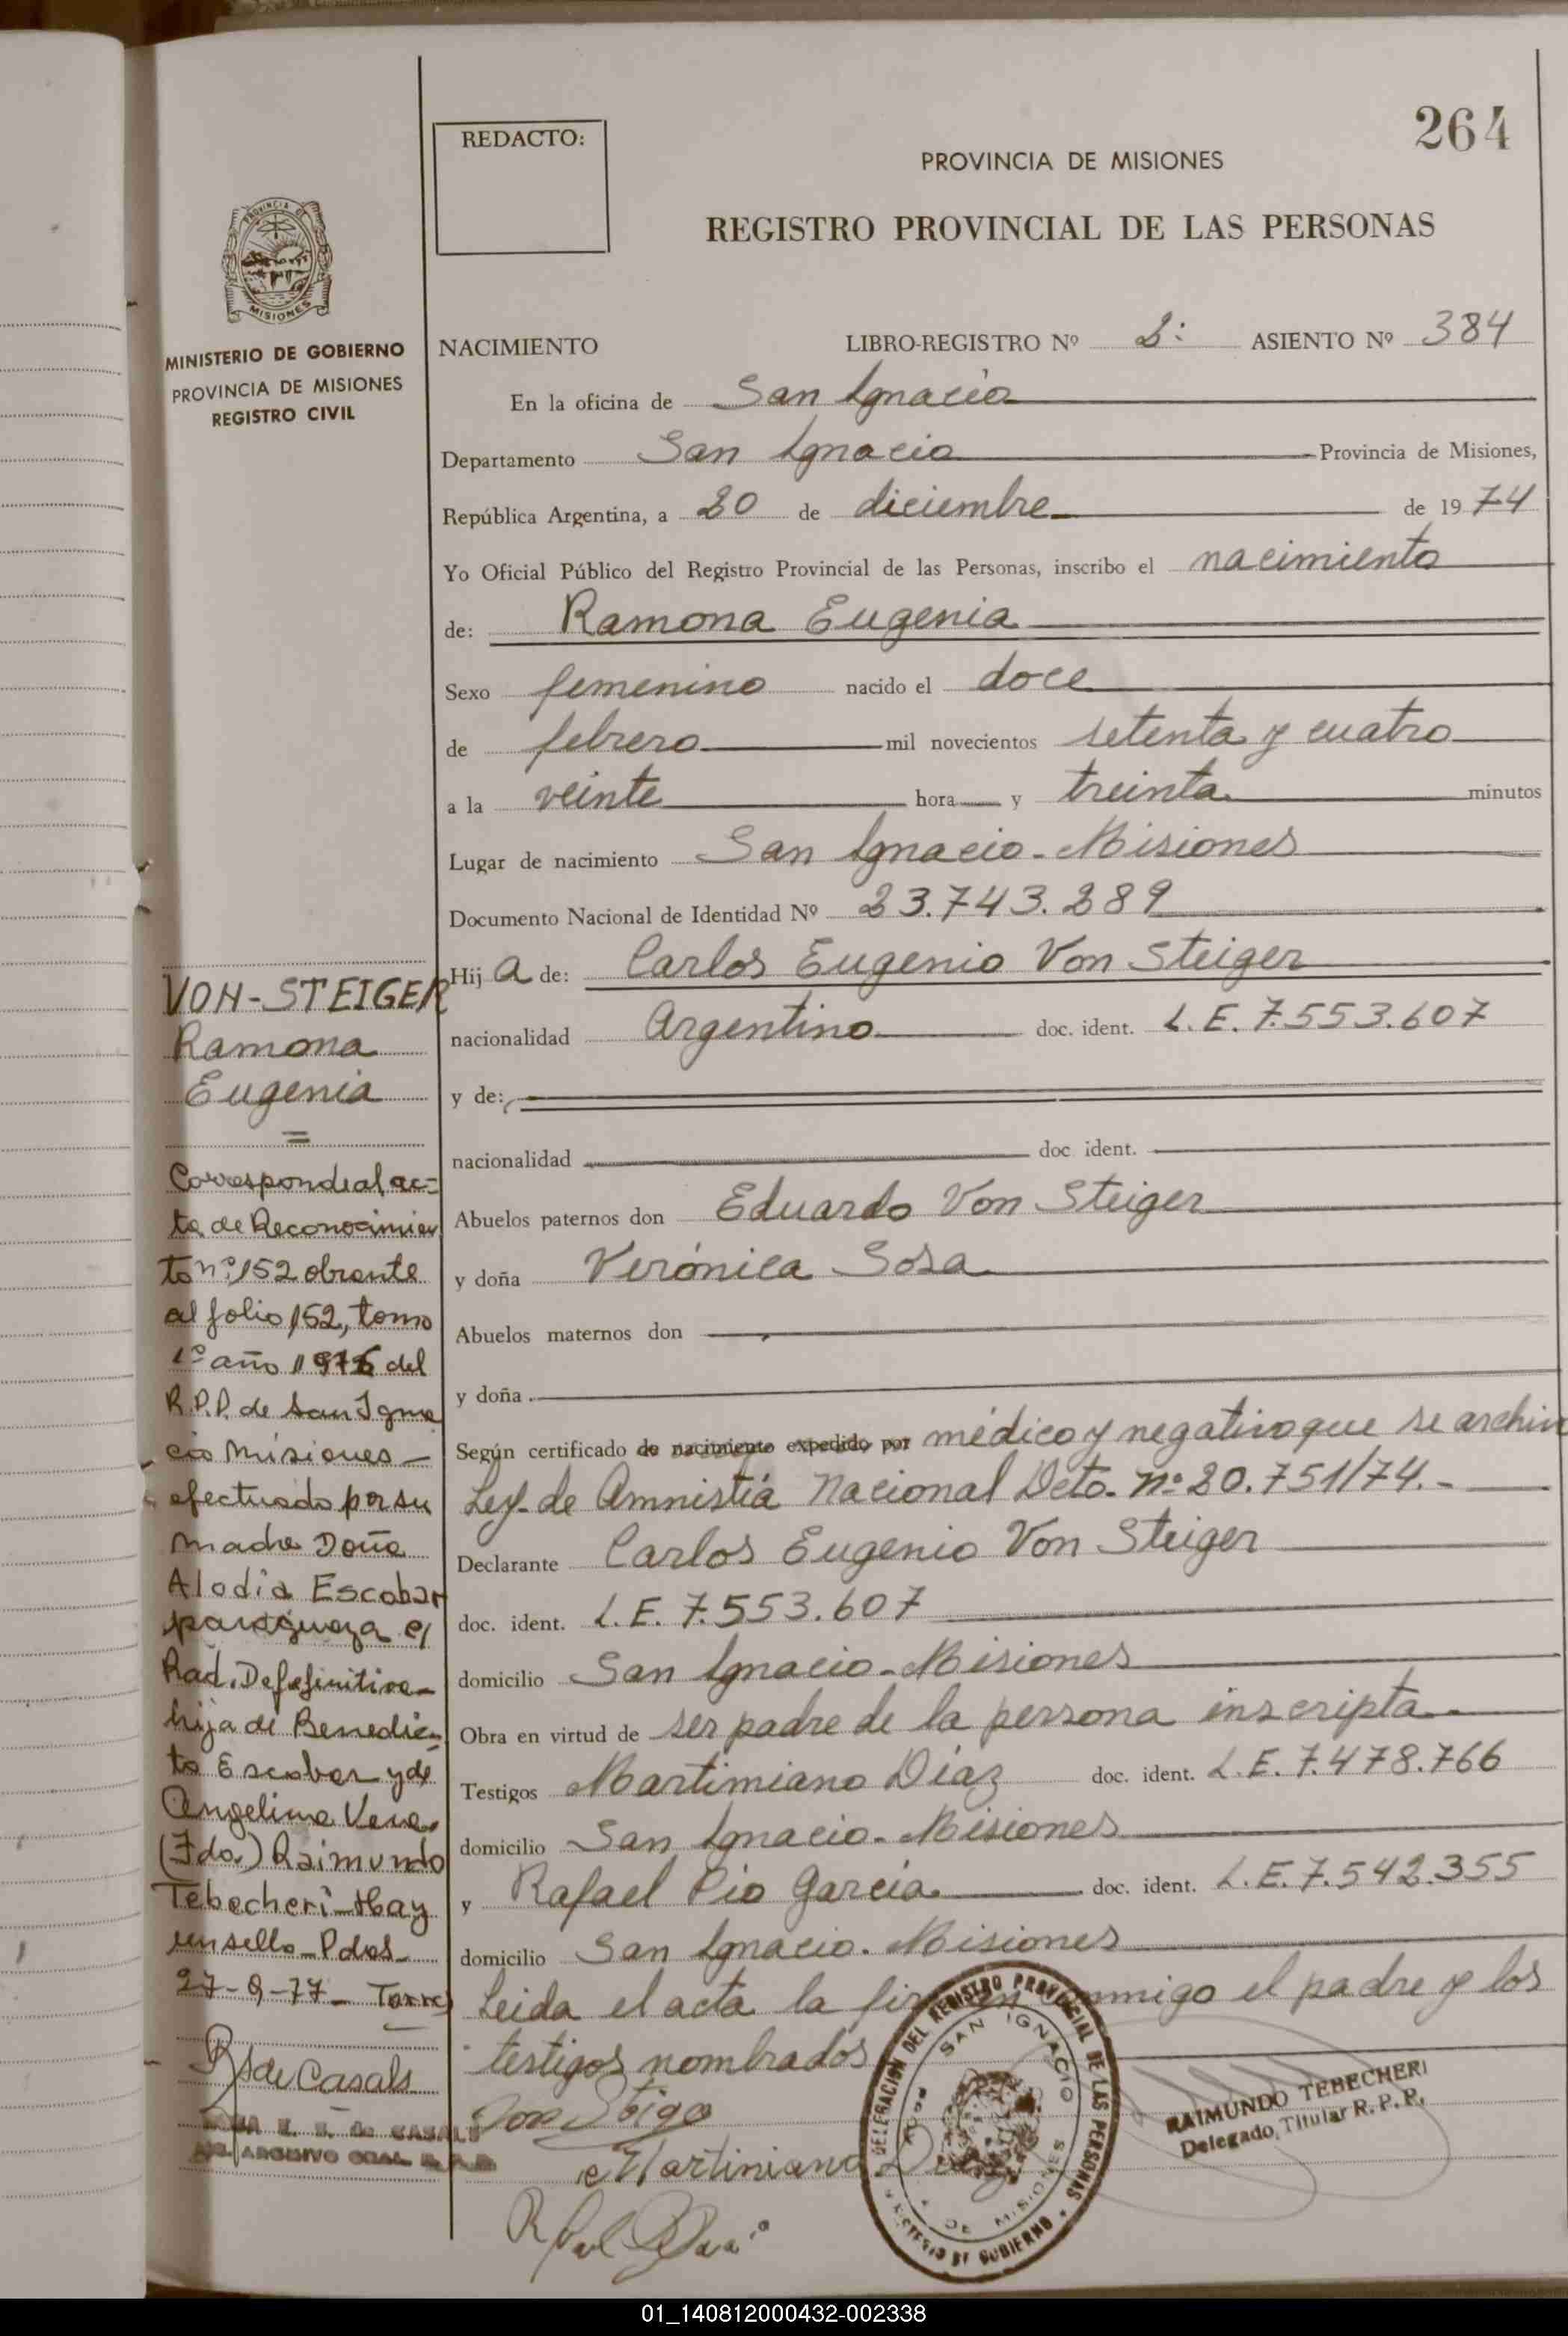 264
REDACTO:
PROVINCIA DE MISIONES
REGISTRO PROVINCIAL DE LAS PERSONAS
PROVINCIA DE
MISIONES
MINISTERIO DE GOBIERNO
PROVINCIA DE MISIONES
REGISTRO CIVIL
NACIMIENTO LIBRO-REGISTRO Nº 2: ASIENTO Nº 384
En la oficina de San Ignacio
Departamento San Ignacio Provincia de Misiones,
República Argentina, a 20 de diciembre de 1974
Yo Oficial Público del Registro Provincial de las Personas, inscribo el nacimiento
de: Ramona Eugenia
Sexo femenino nacido el doce
de febrero mil novecientos setenta y cuatro
a la veinte hora y treinta minutos
Lugar de nacimiento San Ignacio-Misiones
Documento Nacional de Identidad Nº 23.743.289
Hija de: Carlos Eugenio Von Steiger
nacionalidad Argentino doc. ident. L.E. 7.553.607
y de:
nacionalidad doc. ident.
Abuelos paternos don Eduardo Von Steiger
y doña Verónica Sosa
Abuelos maternos don
y doña
Según certificado de nacimiento expedido por médico y negativo que se archiv
Ley-de Amnistía Nacional Dcto. nº 20.751/74.-
Declarante Carlos Eugenio Von Steiger
doc. ident. L.E. 7.553.607
domicilio San Ignacio-Misiones
Obra en virtud de ser padre de la persona inscripta.
Testigos Martimiano Díaz doc. ident. L.E. 7.478.766
domicilio San Ignacio-Misiones
y Rafael Pio García doc. ident. L.E. 7.542.355
domicilio San Ignacio. Misiones
Leida el acta la firman conmigo el padre y los
testigos nombrados
Martiniano Diaz
VON-STEIGER
Ramona
Eugenia
=
Corresponde al ac=
ta de Reconocimien
to nº 152 obrante
al folio 152, tomo
1º año 1976 del
R.P.P. de San Igna
cio Misiones-
efectuado por su
madre Doña
Alodia Escobar
paraguaya c/
Rad. Defefinitiva-
hija de Benedic=
to Escobar y de
Angelina Vera.
(Fdo.) Raimundo
Tebecheri-Hay
un sello-Pdas-
27-9-77- Torres
de Casals
DELEGACION DEL REGISTRO PROVINCIAL DE LAS PERSONAS
MINISTERIO DE GOBIERNO
SAN IGNACIO
DE MISIONES
RAIMUNDO TEBECHERI
Delegado Titular R. P. P.
de CASALS
ARCHIVO GRAL R.P.P.
01_140812000432-002338